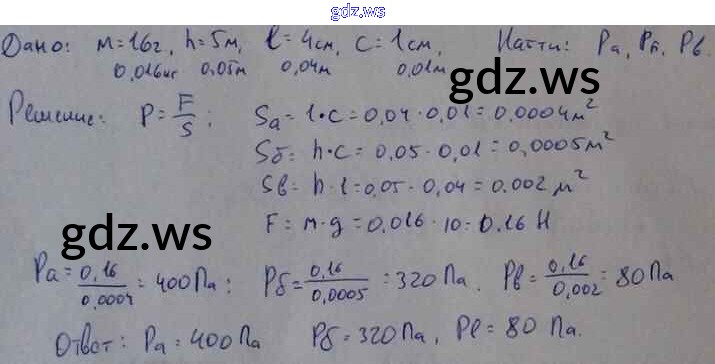 gdz.ws
Дано: m=16г, h=5м, l=4см, c=1см, Найти: Pа, Pб, Pв.
0,016кг 0,05м 0,04м 0,01м
gdz.ws
Решение: P=F/S; Sа=l·c=0,04·0,01=0,0004м²
Sб=h·c=0,05·0,01=0,0005м²
Sв=h·l=0,05·0,04=0.002м²
gdz.ws
F=m·g=0,016·10=0.16 Н
Pа=0,16/0,0004=400Па; Pб=0,16/0,0005=320Па. Pв=0,16/0,002=80Па
Ответ: Pа=400Па Pб=320Па, Pв=80 Па.
gdz.ws